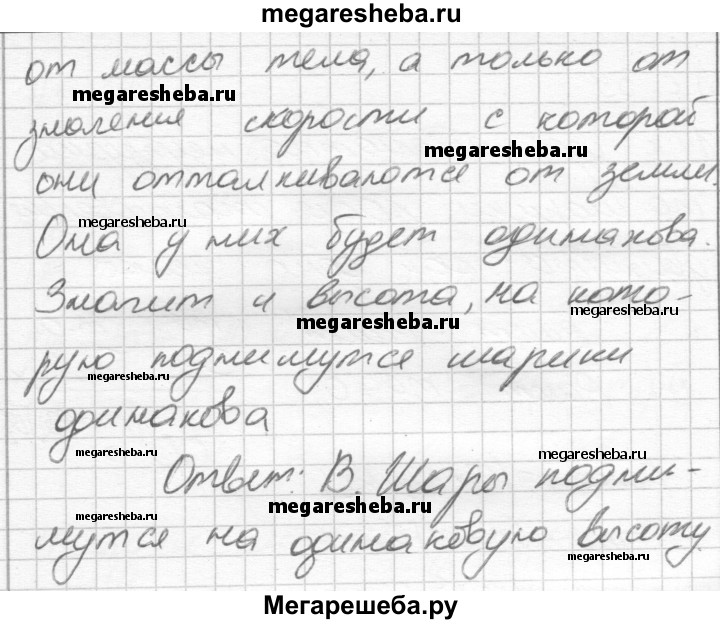 megaresheba.ru
от массы тела, а только от
megaresheba.ru
значения скорости с которой
megaresheba.ru
они отталкиваются от земли.
megaresheba.ru
Она у них будет одинакова.
Значит и высота, на кото-
megaresheba.ru
megaresheba.ru
рую поднимутся шарики
megaresheba.ru
одинакова
megaresheba.ru
megaresheba.ru
Ответ: В. Шары подни-
megaresheba.ru
megaresheba.ru
мутся на одинаковую высоту
megaresheba.ru
Мегарешеба.ру